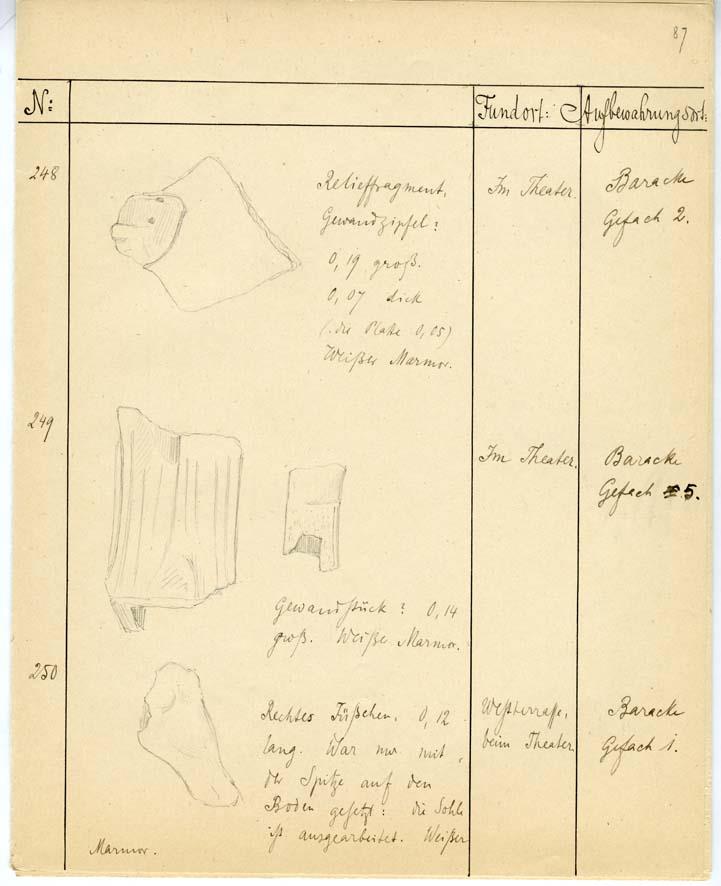 87
N: Fundort: Aufbewahrungsort:
248
Relieffragment,
Gewandzipfel?
0,19 groß.
0,07 dick
(: die Platte 0,05)
Weißer Marmor.
Im Theater.
Baracke
Gefach 2.
249
Gewandstück? 0,14
groß. Weißer Marmor.
Im Theater.
Baracke
Gefach 5.
250
Rechtes Füßchen, 0,12
lang. War nur mit
der Spitze auf den
Boden gesetzt: die Sohle
ist ausgearbeitet. Weißer
Marmor.
Westterrasse,
beim Theater.
Baracke
Gefach 1.